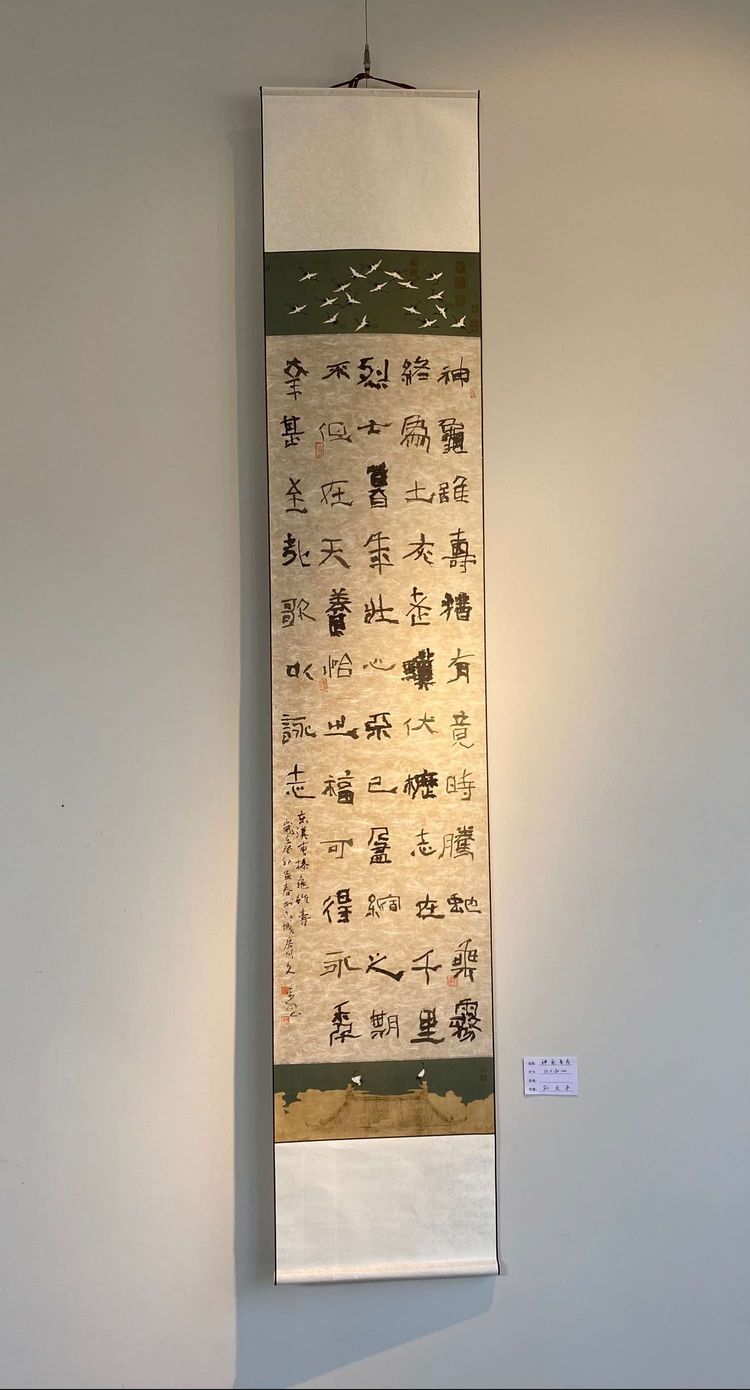 神龜雖壽猶有竟時騰虵乘霧
終為土灰老驥伏櫪志在千里
烈士暮年壯心不已盈縮之期
不但在天養怡之福可得永年
幸甚至哉歌以詠志
东漢曹操龜雖壽
歲在癸卯孟春
神龟
尺寸：